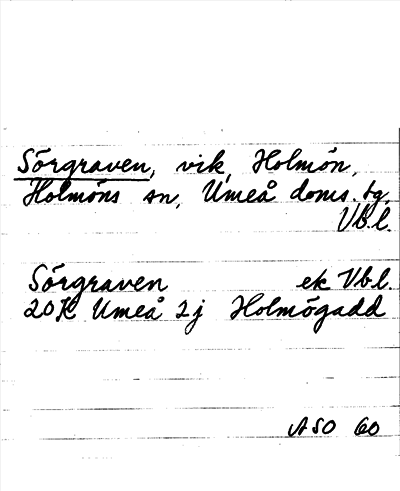 Sörgraven, vik, Holmön,
Holmöns sn, Umeå doms. tg,
Vb.l.
Sörgraven ek Vbl.
20K Umeå 2j Holmögadd
ASO 60